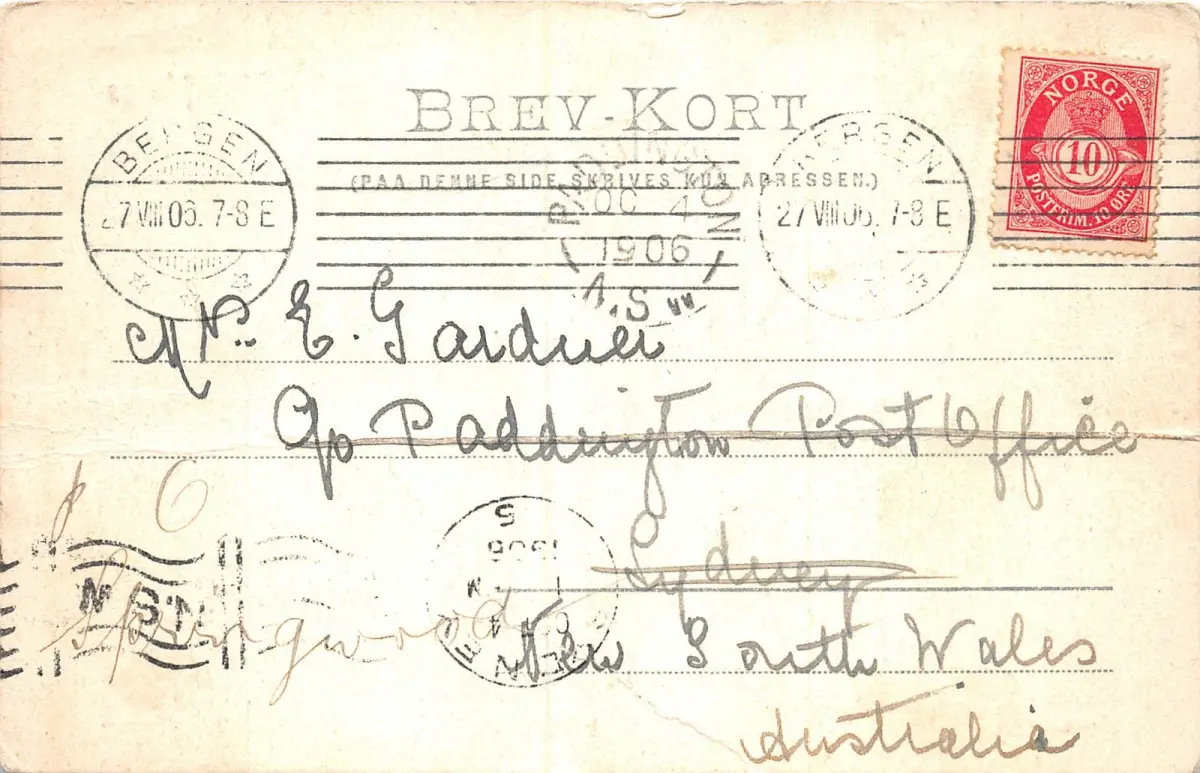 BREV-KORT
(PAA DENNE SIDE SKRIVES KUN ADRESSEN.)
BERGEN
27 VIII 06. 7-8 E
PADDINGTON
OC 4
1906
N.S.W
BERGEN
27 VIII 06. 7-8 E
NORGE
10
POSTFRIM. 10 ØRE
Mr. E. Gardner
c/o Paddington Post Office
Sydney
New South Wales
Australia
P O
Springwood
N.S.W